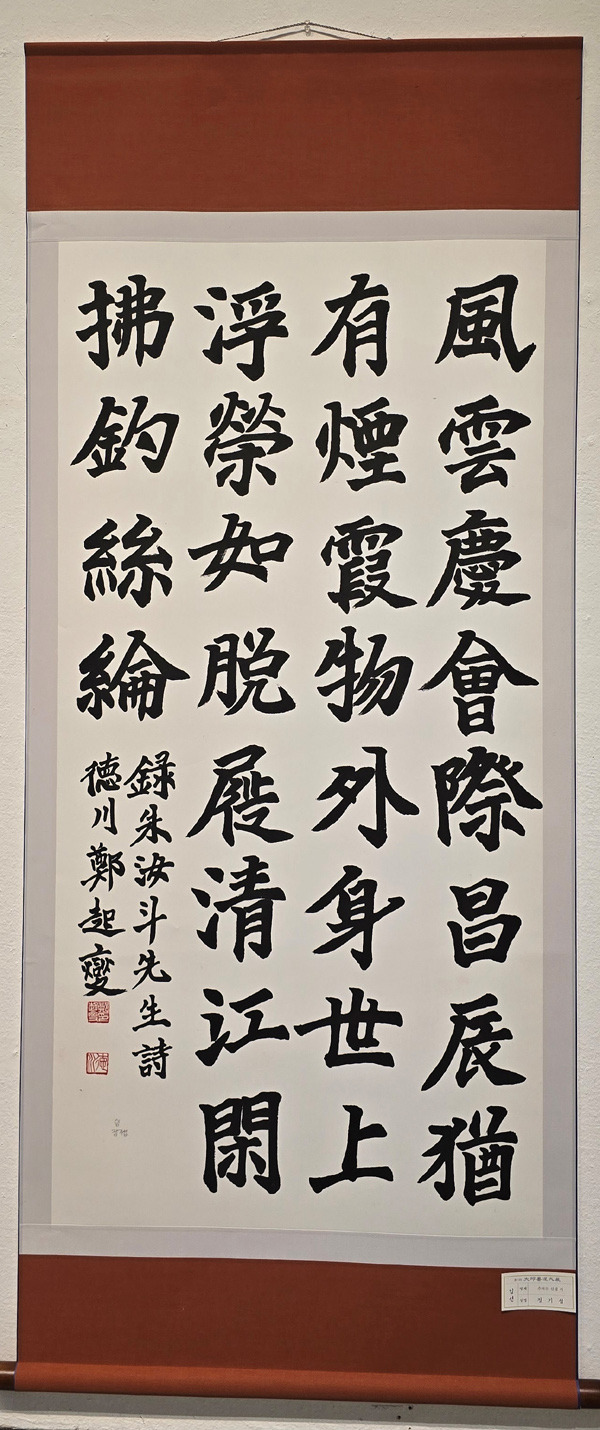 風雲慶會際昌辰猶
有煙霞物外身世上
浮榮如脫屣清江閑
拂釣絲綸
錄朱汝斗先生詩
德川鄭起燮